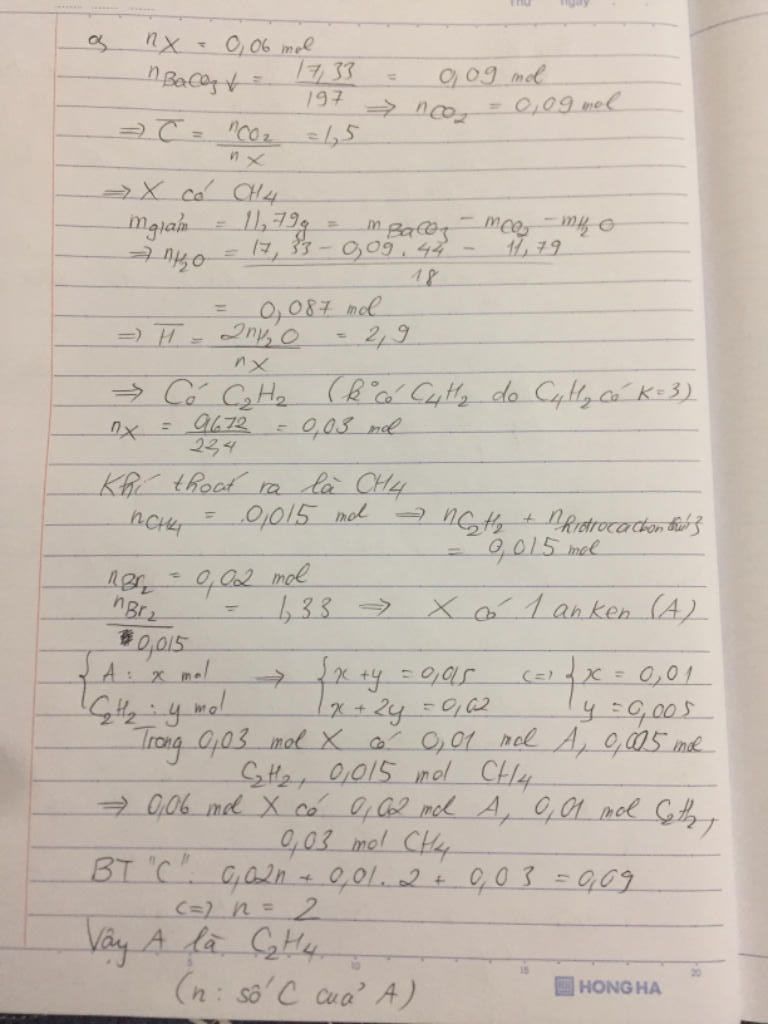 Thứ ngày
a, nX = 0,06 mol
nBaCO3↓ = 17,33/197 = 0,09 mol
⇒ nCO2 = 0,09 mol
⇒ C̅ = nCO2/nX = 1,5
⇒ X có CH4
mgiảm = 11,79g = mBaCO3 - mCO2 - mH2O
⇒ nH2O = (17,33 - 0,09.44 - 11,79)/18
= 0,087 mol
⇒ H̅ = 2nH2O/nX = 2,9
⇒ Có C2H2 (k° có C4H2 do C4H2 có K=3)
nX = 0,672/22,4 = 0,03 mol
Khí thoát ra là CH4
nCH4 = 0,015 mol ⇒ nC2H2 + nhidrocacbon thứ 3
= 0,015 mol
nBr2 = 0,02 mol
nBr2/0,015 = 1,33 ⇒ X có 1 anken (A)
{ A: x mol ⇒ { x + y = 0,015 <=> { x = 0,01
C2H2: y mol x + 2y = 0,02 y = 0,005
Trong 0,03 mol X có 0,01 mol A, 0,005 mol
C2H2, 0,015 mol CH4
⇒ 0,06 mol X có 0,02 mol A, 0,01 mol C2H2,
0,03 mol CH4
BT "C": 0,02n + 0,01.2 + 0,03 = 0,09
<=> n = 2
Vậy A là C2H4
(n: số C của A)
5 10 15 20
HONG HA